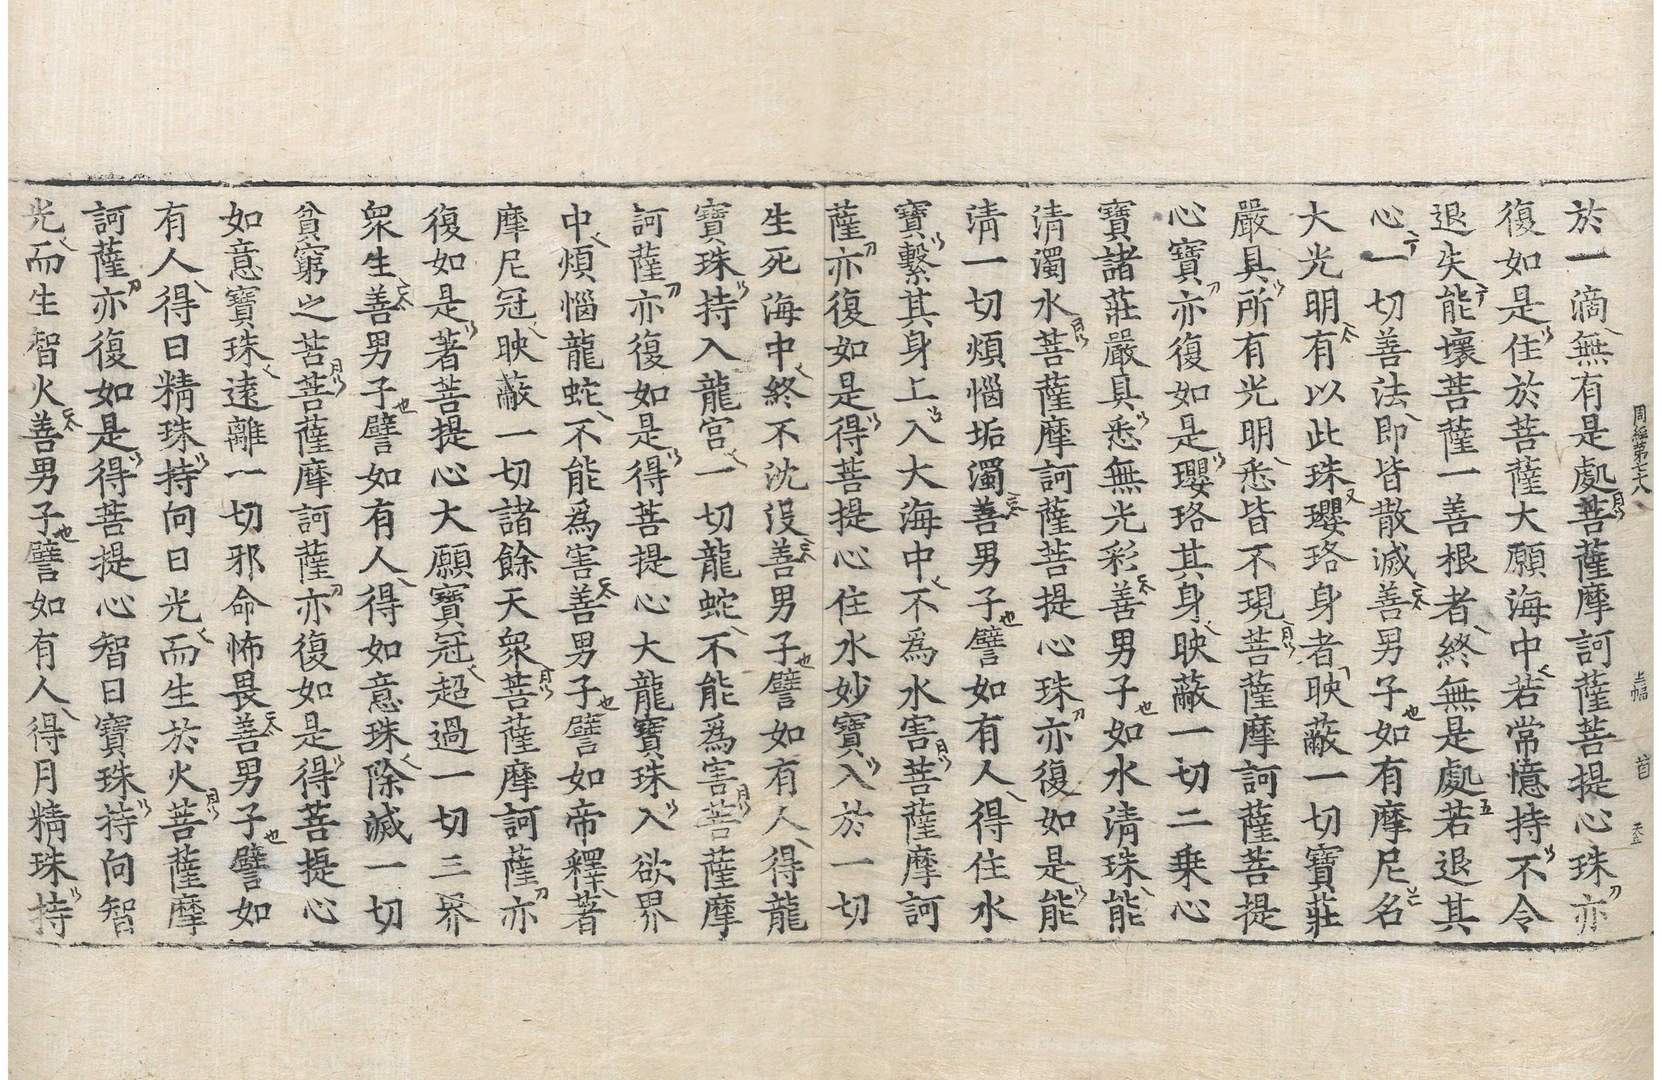 於一滴無有是處菩薩摩訶薩菩提心珠亦
復如是住於菩薩大願海中若常憶持不令
退失能壞菩薩一善根者終無是處若退其
心一切善法即皆散滅善男子如有摩尼名
大光明有以此珠瓔珞身者映蔽一切寶莊
嚴具所有光明悉皆不現菩薩摩訶薩菩提
心寶亦復如是瓔珞其身映蔽一切二乘心
寶諸莊嚴具悉無光彩善男子如水清珠能
清濁水菩薩摩訶薩菩提心珠亦復如是能
清一切煩惱垢濁善男子譬如有人得住水
寶繫其身上入大海中不爲水害菩薩摩訶
薩亦復如是得菩提心住水妙寶入於一切
生死海中終不沈沒善男子譬如有人得龍
寶珠持入龍宮一切龍蛇不能爲害菩薩摩
訶薩亦復如是得菩提心大龍寶珠入欲界
中煩惱龍蛇不能爲害善男子譬如帝釋著
摩尼冠映蔽一切諸餘天衆菩薩摩訶薩亦
復如是著菩提心大願寶冠超過一切三界
衆生善男子譬如有人得如意珠除滅一切
貧窮之苦菩薩摩訶薩亦復如是得菩提心
如意寶珠遠離一切邪命怖畏善男子譬如
有人得日精珠持向日光而生於火菩薩摩
訶薩亦復如是得菩提心智日寶珠持向智
光而生智火善男子譬如有人得月精珠持